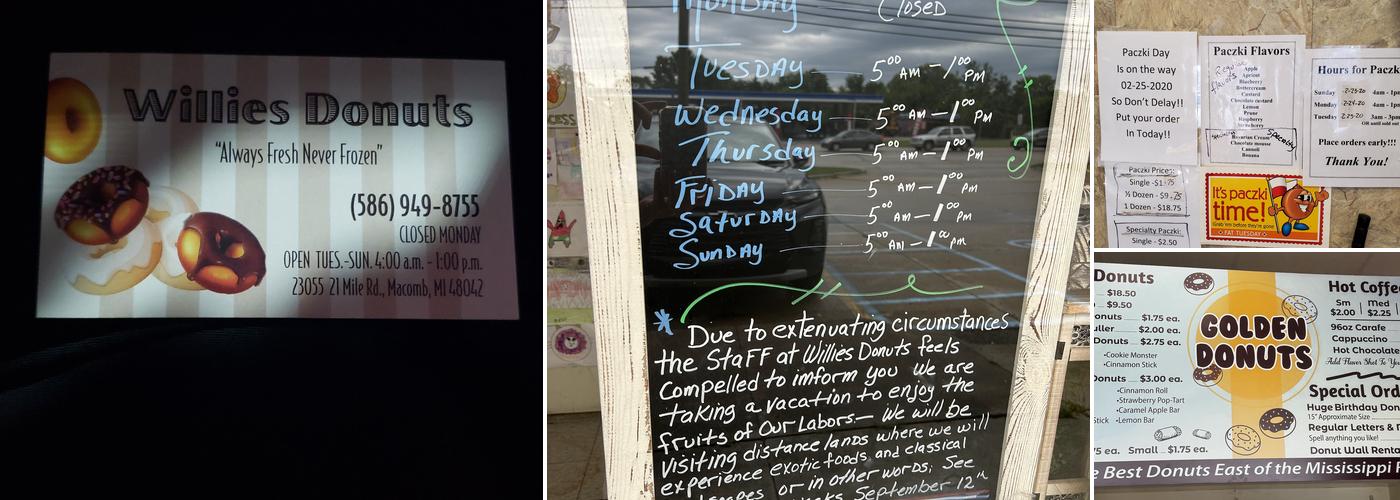 Willies Donuts
"Always Fresh Never Frozen"
(586) 949-8755
CLOSED MONDAY
OPEN TUES.-SUN. 4:00 a.m. - 1:00 p.m.
23055 21 Mile Rd., Macomb, MI 48042
Monday Closed
Tuesday 5:00 AM - 1:00 PM
Wednesday 5:00 AM - 1:00 PM
Thursday 5:00 AM - 1:00 PM
Friday 5:00 AM - 1:00 PM
Saturday 5:00 AM - 1:00 PM
Sunday 5:00 AM - 1:00 PM
* Due to extenuating circumstances
the Staff at Willies Donuts feels
compelled to imform you we are
taking a vacation to enjoy the
fruits of our Labors— We will be
Visiting distance lands where we will
experience exotic foods and classical
or in other words; See
September 12th
Paczki Day
Is on the way
02-25-2020
So Don't Delay!!
Put your order
In Today!!
Paczki Prices:
Single -$1.75
½ Dozen - $9.75
1 Dozen - $18.75
Specialty Paczki:
Single - $2.50
Paczki Flavors
Regular
flavors
Apple
Apricot
Blueberry
Buttercream
Custard
Chocolate custard
Lemon
Prune
Raspberry
Strawberry
Bavarian Cream
Chocolate mousse
Cannoli
Banana
Specialty
It's paczki
time!
Grab 'em before they're gone
FAT TUESDAY
Hours for Paczk
Sunday 2-23-20 4am - 1p
Monday 2-24-20 4am - 1p
Tuesday 2-25-20 3am - 3p
OR until sold out
Place orders early!!!
Thank You!
Donuts
$18.50
$9.50
onuts $1.75 ea.
uller $2.00 ea.
Donuts $2.75 ea.
•Cookie Monster
•Cinnamon Stick
Donuts $3.00 ea.
•Cinnamon Roll
•Strawberry Pop-Tart
•Caramel Apple Bar
Stick •Lemon Bar
75 ea. Small $1.75 ea.
GOLDEN
DONUTS
Hot Coffee
Sm Med
$2.00 $2.25
96oz Carafe
Cappuccino
Hot Chocolate
Add Flavor Shot To Yo
Special Ord
Huge Birthday Don
15" Approximate Size
Regular Letters &
Spell anything you like!
Donut Wall Renta
e Best Donuts East of the Mississippi R